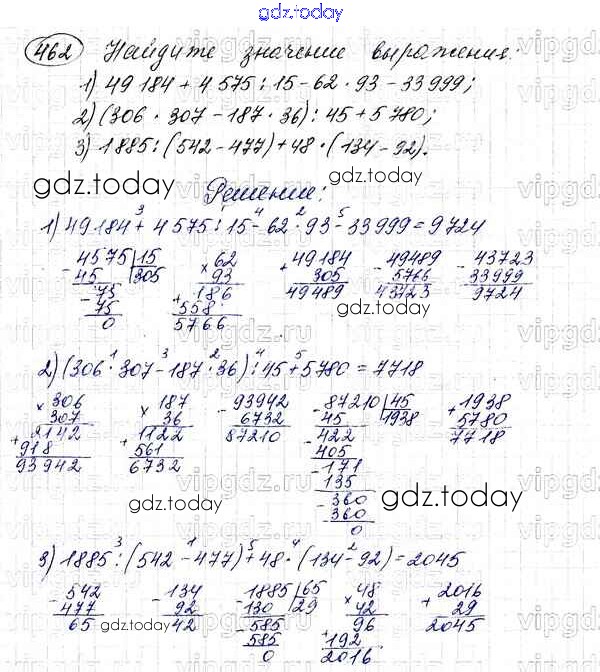 gdz.today
462 Найдите значение выражения:
1) 49 184 + 4 575 : 15 - 62 · 93 - 33 999;
2) (306 · 307 - 187 · 36) : 45 + 5 780;
3) 1885 : (542 - 477) + 48 · (134 - 92).
gdz.today
Решение:
gdz.today
1) 49 184 +³ 4 575 :¹ 15 -⁴ 62 ·² 93 -⁵ 33 999 = 9724
4575 15 62 49184 49489 43723
- 45 305 × 93 + 305 - 5766 - 33999
- 75 186 49489 43723 9724
75 + 558
0 5766
gdz.today
2) (306 ·¹ 307 -³ 187 ·² 36) :⁴ 45 +⁵ 5780 = 7718
× 306 × 187 - 93942 - 87210 45 + 1938
307 36 6732 45 1938 5780
+ 2142 + 1122 87210 - 422 7718
918 561 405
93942 6732 - 171
135
- 360
360
0
gdz.today
3) 1885 :³ (542 -¹ 477) +⁵ 48 ·⁴ (134 -² 92) = 2045
- 542 - 134 - 1885 65 × 48 + 2016
477 92 130 29 42 29
65 42 - 585 96 2045
585 + 192
0 2016
gdz.today
gdz.today
vipgdz.ru